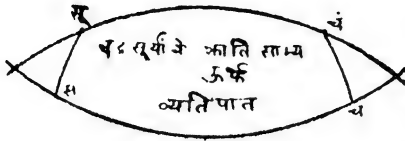 सू
चं
चंद्र सूर्यांचे क्रांति साम्य
ऊर्फ
व्यतिपात
स
च